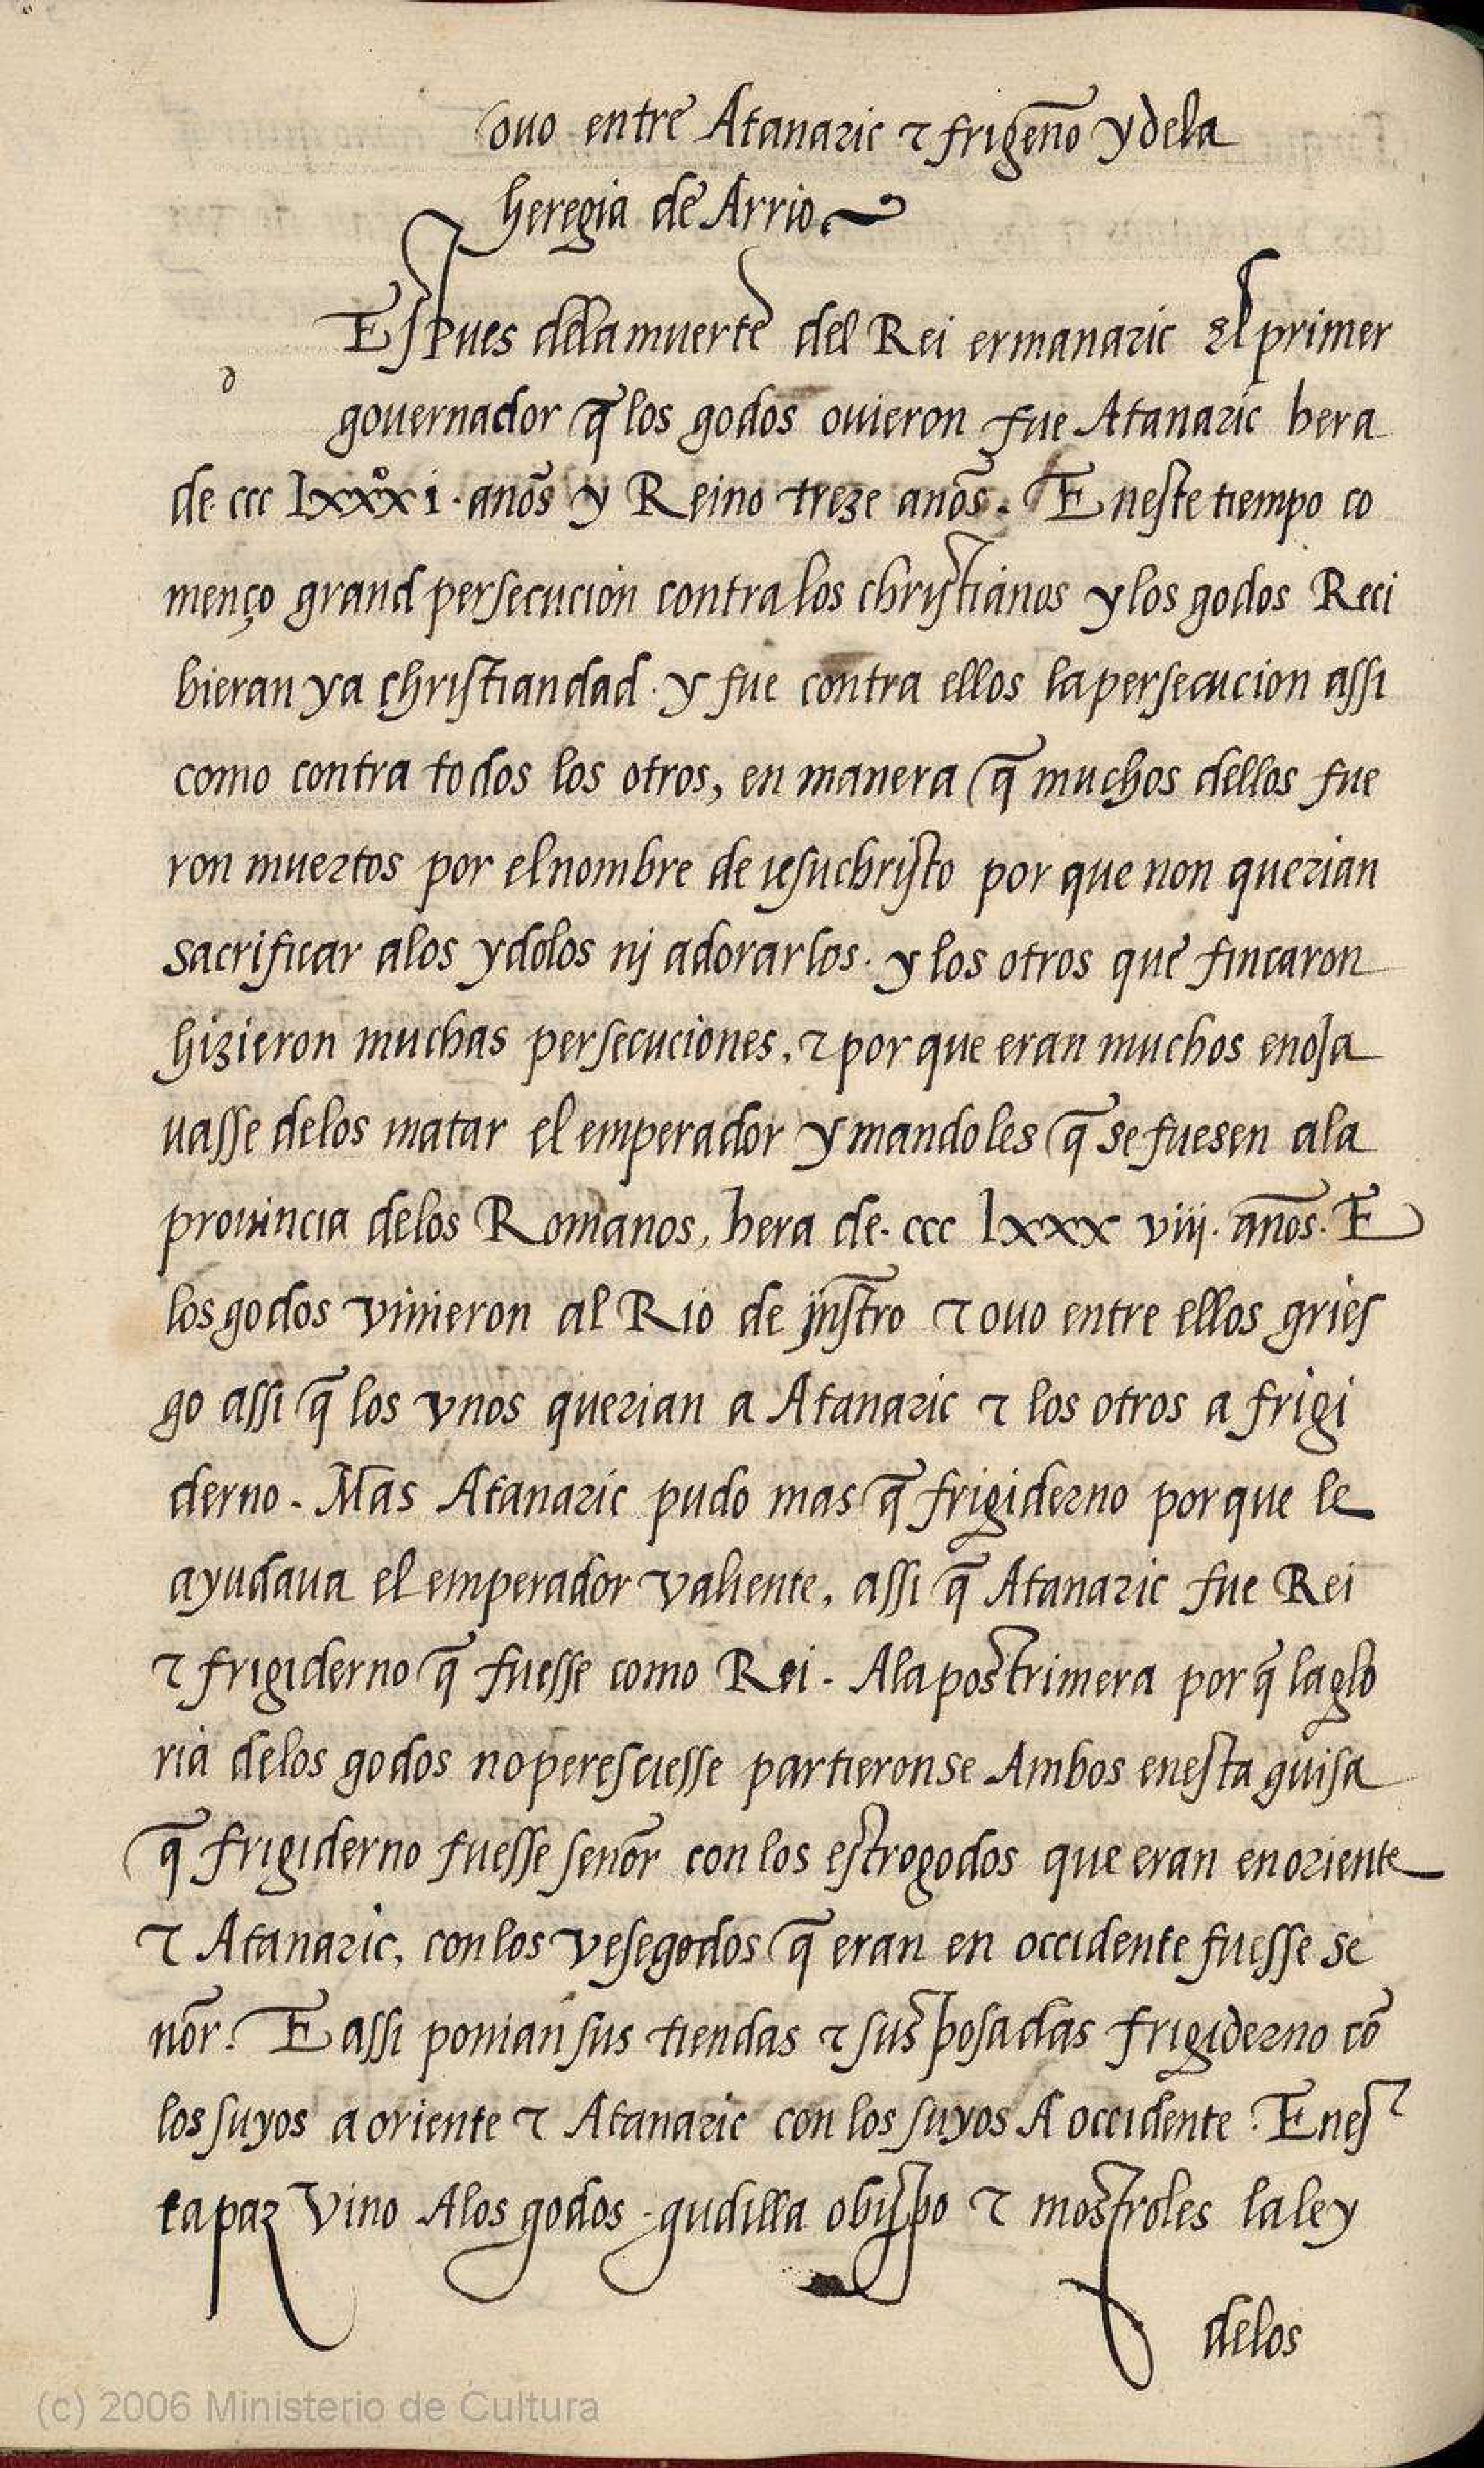 ouo entre Atanaric ⁊ frigeno y dela
heregia de Arrio
Espues dela muerte del Rei ermanaric el primer
d
gouernador q̃ los godos ouieron fue Atanaric hera
de ccc lxxxi · anõs y Reino treze anõs. En este tiempo co
menço grand persecucion contra los christianos y los godos Reci
bieran ya christiandad · y fue contra ellos la persecucion assi
como contra todos los otros, en manera q̃ muchos dellos fue
ron muertos por el nombre de iesuchristo por que non querian
sacrificar alos ydolos nj adorarlos · y los otros que fincaron
hizieron muchas persecuciones, ⁊ por que eran muchos enoja
uasse delos matar el emperador y mandoles q̃ se fuesen ala
prouincia delos Romanos, hera de · ccc lxxx viij · anõs · E
los godos vinieron al Rio de jnstro ⁊ ouo entre ellos gries
go assi q̃ los vnos querian a Atanaric ⁊ los otros a frigi
derno . Mas Atanaric pudo mas q̃ frigiderno por que le
ayudaua el emperador valiente, assi q̃ Atanaric fue Rei
⁊ frigiderno q̃ fuesse como Rei . Ala postrimera por q̃ la glo
ria delos godos no peresciesse partieronse Ambos en esta guisa
q̃ frigiderno fuesse senõr con los estrogodos que eran en oriente
⁊ Atanaric, con los vesegodos q̃ eran en occidente fuesse se
nõr. E assi ponian sus tiendas ⁊ sus posadas frigiderno cõ
los suyos a oriente ⁊ Atanaric con los suyos A occidente . Enes
ta paz Vino Alos godos gudilla obispo ⁊ mostroles la ley
delos
(c) 2006 Ministerio de Cultura